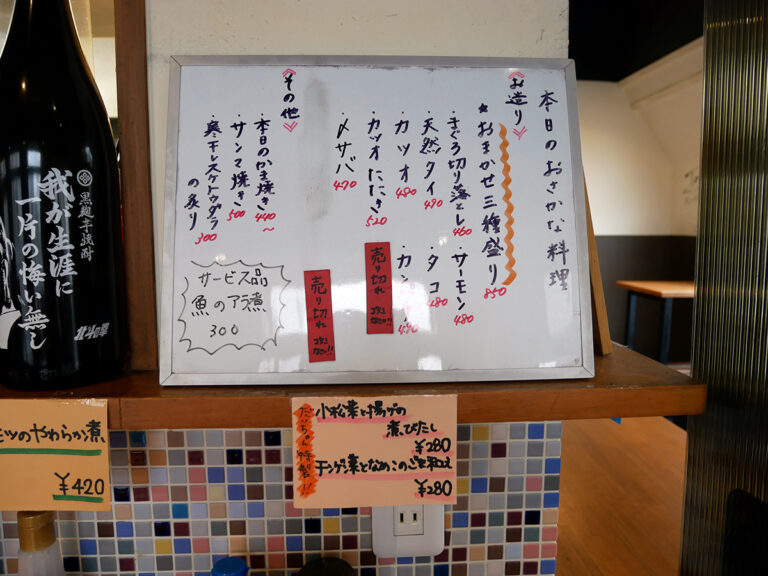 本日のおさかな料理
お造り
★おまかせ三種盛り 850
・まぐろ切り落とし 460
・天然ダイ 490
・カツオ 480
・カツオたたき 520
・〆サバ 470
・サーモン 480
・タコ 480
・カン
売り切れ
ゴメンなさい!!
売り切れ
ゴメンなさい!!
その他
・本日のかま焼き 440〜
・サンマ焼き 500
・寒干しスケトウダラの炙り 300
サービス品
魚のアラ煮
300
黒麹芋焼酎
我が生涯に
一片の悔い無し
北斗の拳
モツのやわらか煮
¥420
だいちゃん特製!!
小松菜と揚げの
煮びたし
¥280
チンゲン菜となめこのごま和え
¥280